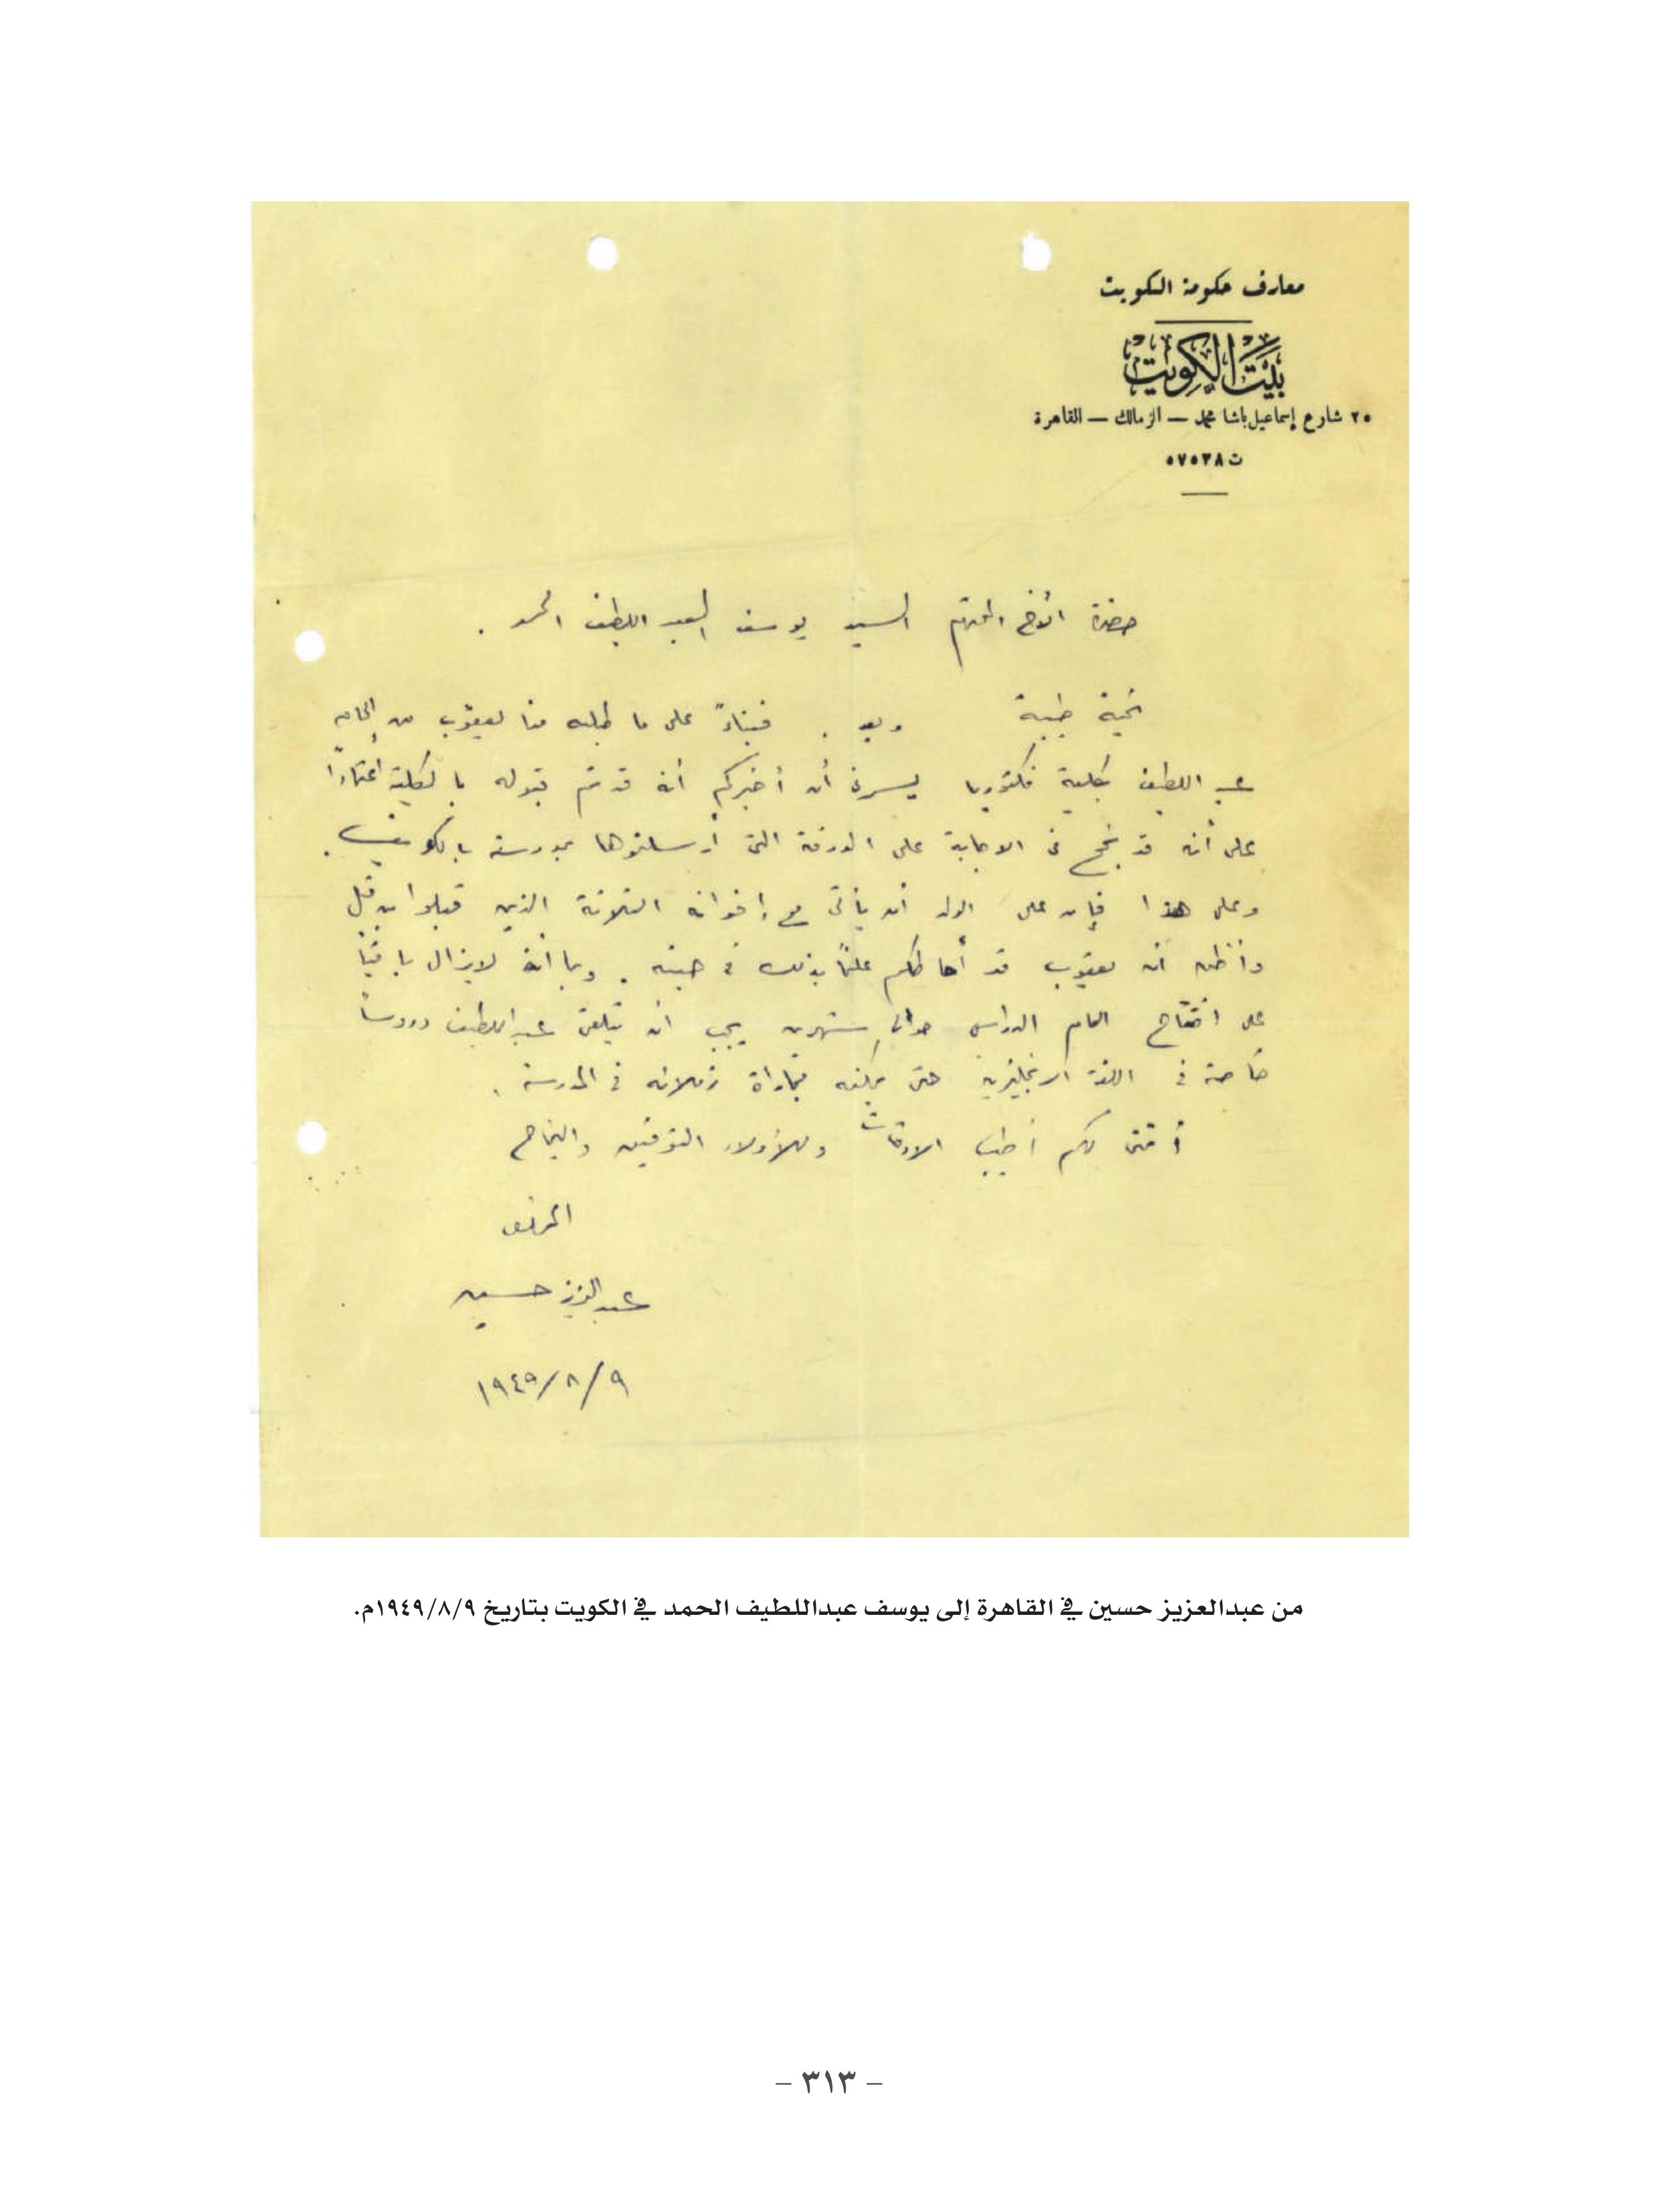 معارف حكومة الكويت
بيت الكويت
٢٥ شارع إسماعيل باشا محمد — الزمالك — القاهرة
ت ٥٧٥٣٨
حضرة الأخ المحترم السيد يوسف العبد اللطيف الحمد .
تحية طيبة وبعد . فبناءً على ما طلبه منا يعقوب من إلحاق
عبد اللطيف بكلية فكتوريا يسرني أن أخبركم أنه قد تم قبوله بالكلية اعتمادًا
على أنه قد نجح في الاجابة على الورقة التي أرسلتوها بمدرسته بالكويت .
وعلى هذا فإن على الولد أن يأتي مع إخوانه الثلاثة الذين قبلوا من قبل
وأظن أن يعقوب قد أحاطكم علمًا بذلك في حينه . وبما أنه لايزال باقيًا
على افتتاح العام الدراسي حوالي شهرين يجب أن يتلقى عبد اللطيف دروسًا
خاصة في اللغة الانجليزية حتى يمكنه مجاراة زملائه في المدرسة .
أتمنى لكم أطيب الاوقات وللأولاد التوفيق والنجاح
المخلص
عبد العزيز حسين
١٩٤٩/٨/٩
من عبدالعزيز حسين في القاهرة إلى يوسف عبداللطيف الحمد في الكويت بتاريخ ١٩٤٩/٨/٩م.
– ٣١٣ –